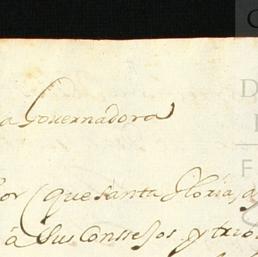 a Governadora
or (que santa Gloria, a
á sus conssejos, y trio